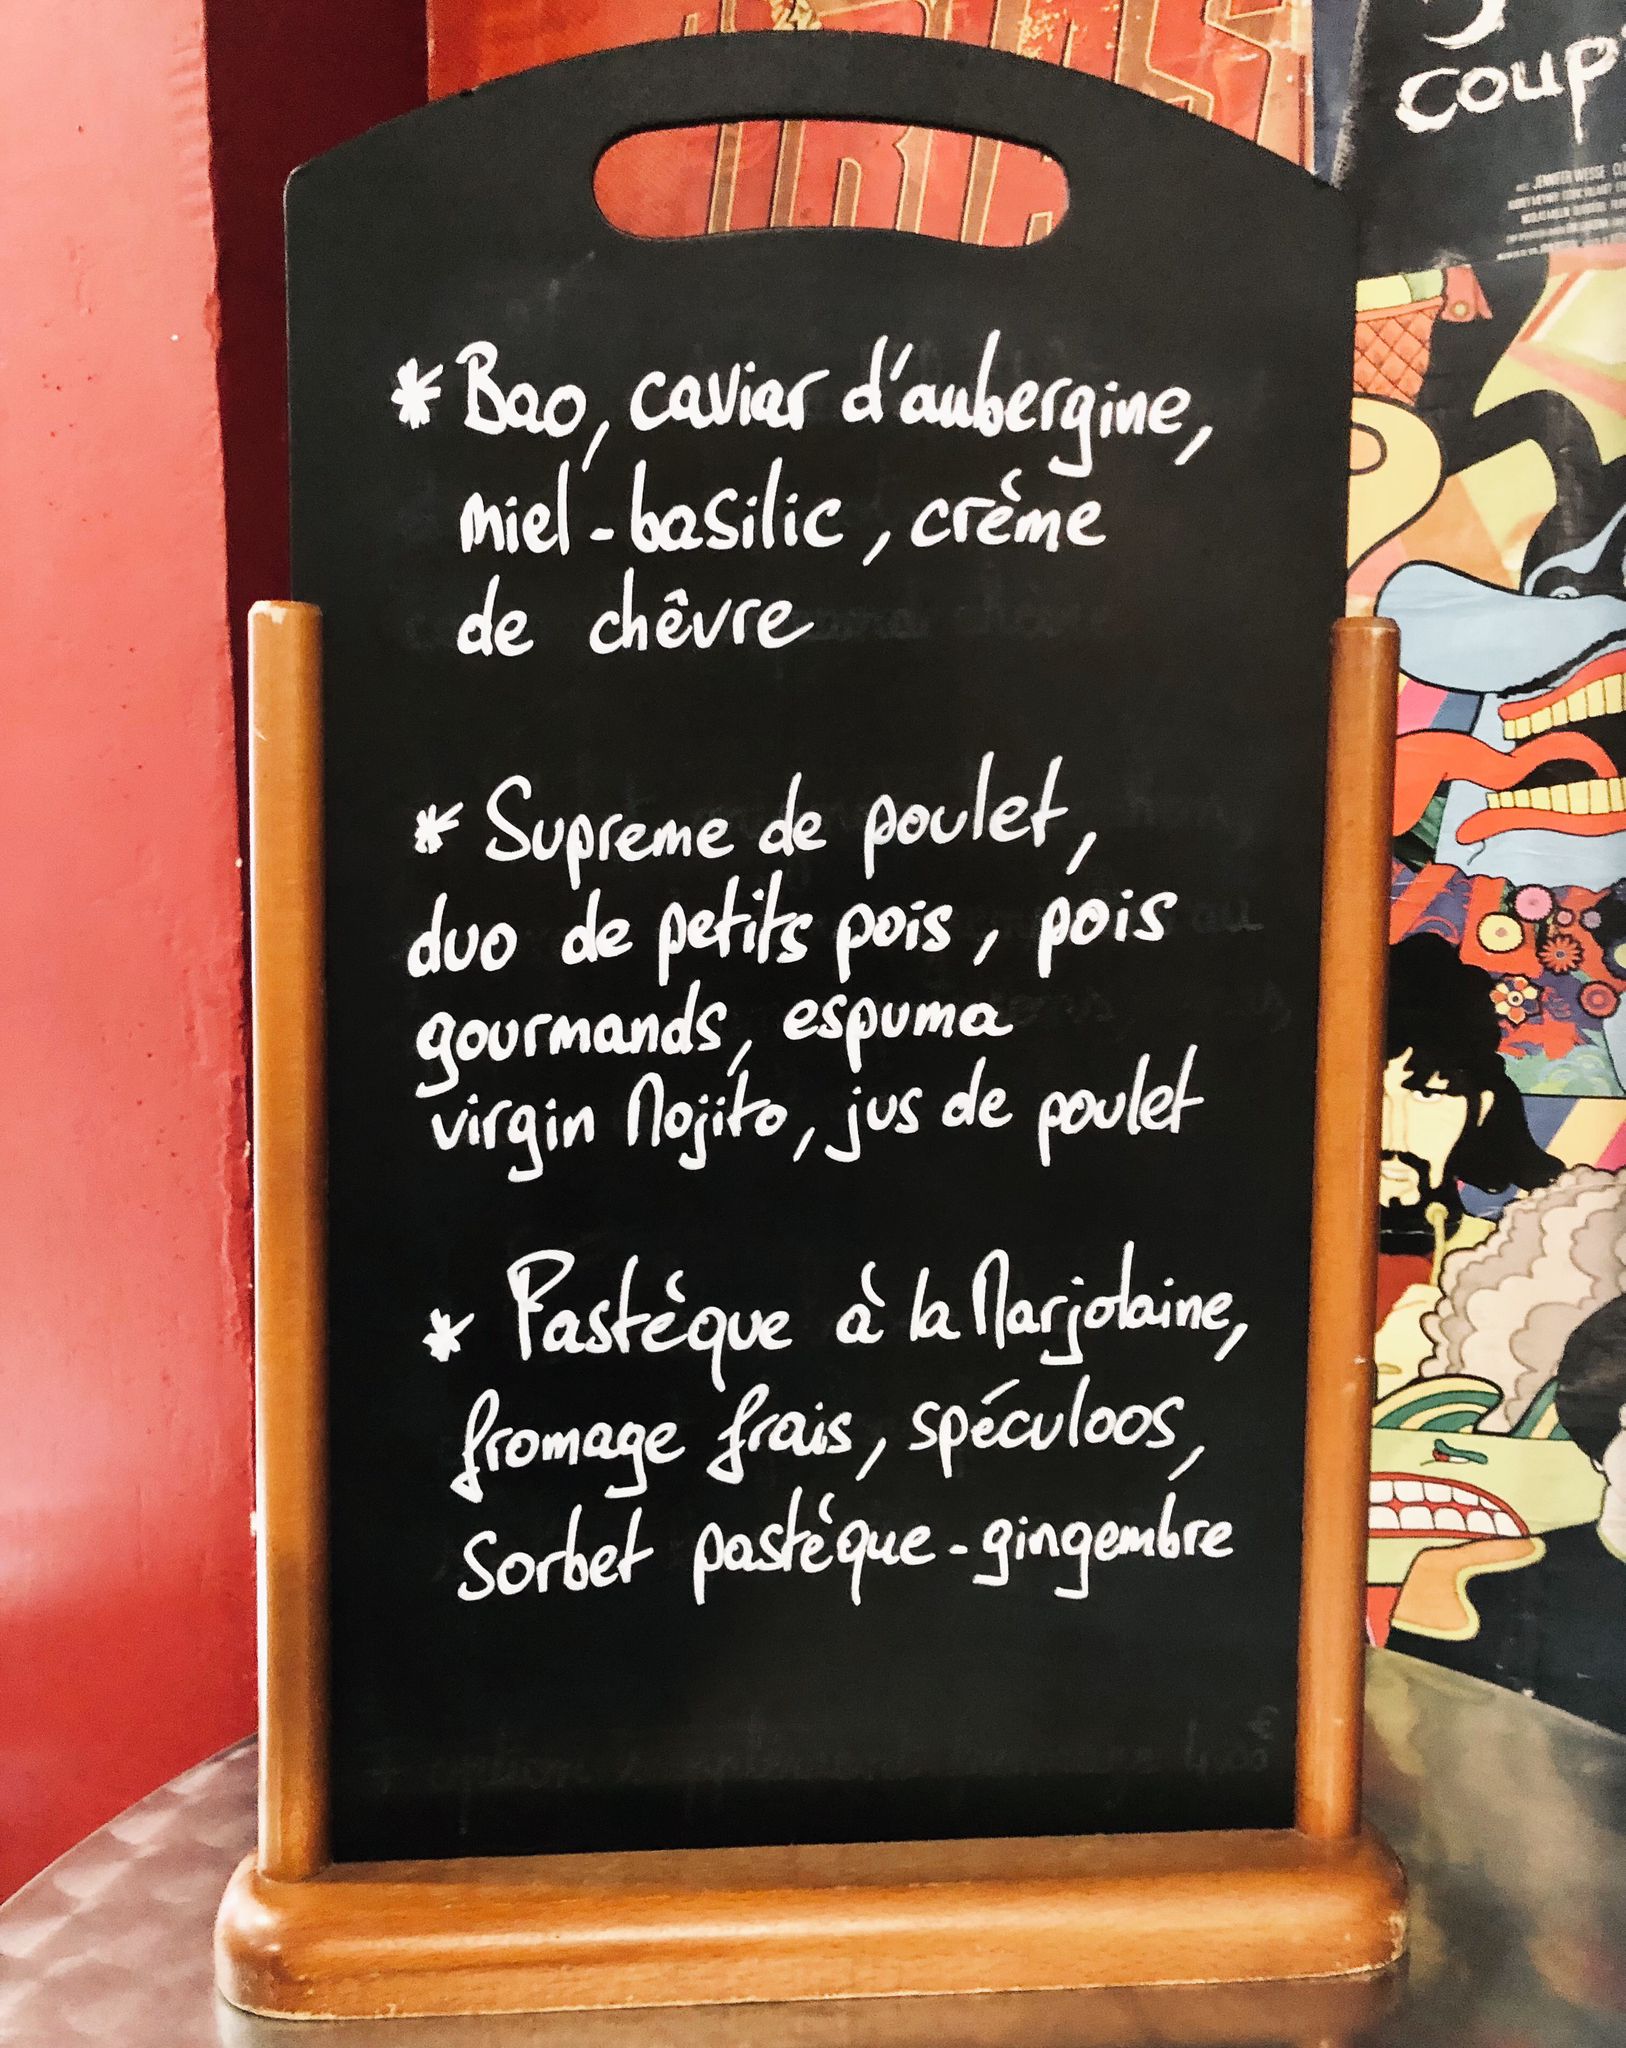 coup
* Bao, caviar d'aubergine,
miel-basilic, crème
de chêvre
* Supreme de poulet,
duo de petits pois, pois
gourmands, espuma
virgin Mojito, jus de poulet
* Pastèque à la Marjolaine,
fromage frais, spéculoos,
Sorbet pastèque-gingembre